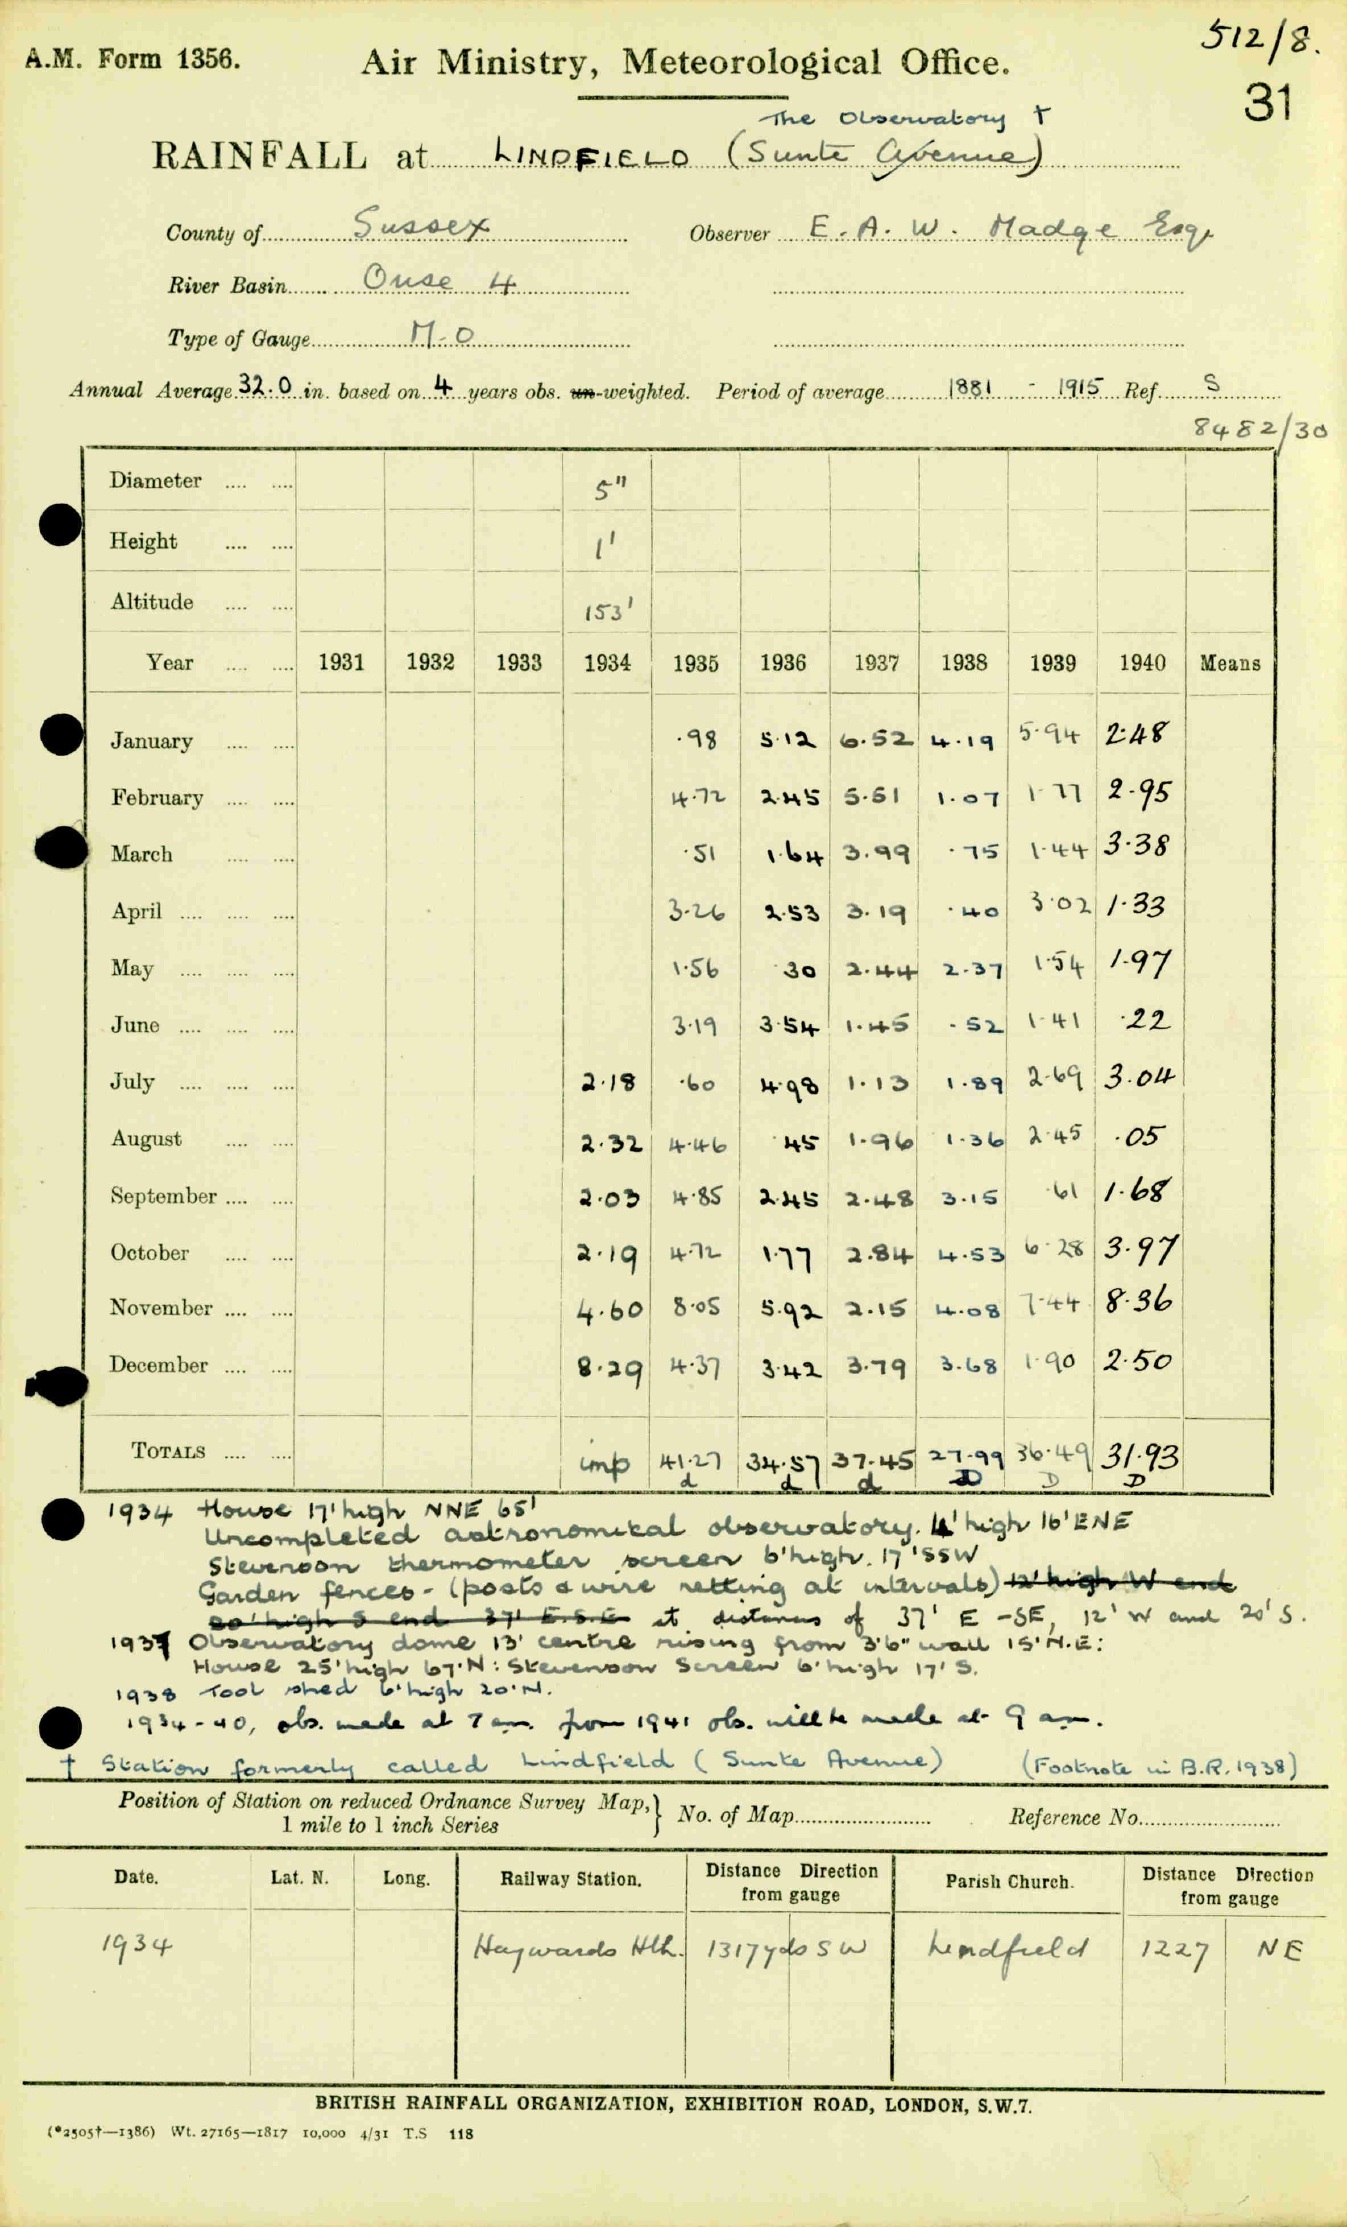 512/8.
A.M. Form 1356. Air Ministry, Meteorological Office.
31
The Observatory †
RAINFALL at LINDFIELD (Sunte Avenue)
County of Sussex Observer E. A. W. Madge Esq.
River Basin Ouse 4
Type of Gauge M.O
Annual Average 32.0 in. based on 4 years obs. un-weighted. Period of average 1881 - 1915 Ref. S
8482/30
Diameter .... .... 5"
Height .... .... 1'
Altitude .... .... 153'
Year .... .... 1931 1932 1933 1934 1935 1936 1937 1938 1939 1940 Means
January .... .... .98 5.12 6.52 4.19 5.94 2.48
February .... .... 4.72 2.45 5.51 1.07 1.77 2.95
March .... .... .51 1.64 3.99 .75 1.44 3.38
April .... .... .... 3.26 2.53 3.19 .40 3.02 1.33
May .... .... .... 1.56 .30 2.44 2.37 1.54 1.97
June .... .... .... 3.19 3.54 1.45 .52 1.41 .22
July .... .... .... 2.18 .60 4.98 1.13 1.89 2.69 3.04
August .... .... 2.32 4.46 .45 1.96 1.36 2.45 .05
September .... .... 2.03 4.85 2.45 2.48 3.15 .61 1.68
October .... .... 2.19 4.72 1.77 2.84 4.53 6.28 3.97
November .... .... 4.60 8.05 5.92 2.15 4.08 7.44 8.36
December .... .... 8.29 4.37 3.42 3.79 3.68 1.90 2.50
TOTALS .... .... imp 41.27 34.57 37.45 27.99 36.49 31.93
d d d D D D
1934 House 17' high NNE 65'
Uncompleted astronomical observatory. 4' high 16' ENE
Stevenson thermometer screen 6' high. 17' SSW
Garden fences - (posts & wire netting at intervals) 12' high W end
20' high S end 37' E.S.E at distances of 37' E -SE, 12' W and 20' S.
1937 Observatory dome 13' centre rising from 3'6" wall 15' N.E:
House 25' high 67' N: Stevenson Screen 6' high 17' S.
1938 Tool shed 6' high 20' N.
1934-40, obs. made at 7 am. from 1941 obs. will be made at 9 am.
† Station formerly called Lindfield (Sunte Avenue) (Footnote in B.R. 1938)
Position of Station on reduced Ordnance Survey Map, } No. of Map Reference No.
1 mile to 1 inch Series
Date. Lat. N. Long. Railway Station. Distance Direction from gauge Parish Church. Distance Direction from gauge
1934 Haywards Hth. 1317 yds SW Lindfield 1227 NE
BRITISH RAINFALL ORGANIZATION, EXHIBITION ROAD, LONDON, S.W.7.
(*2505†—1386) Wt. 27165—1817 10,000 4/31 T.S 118